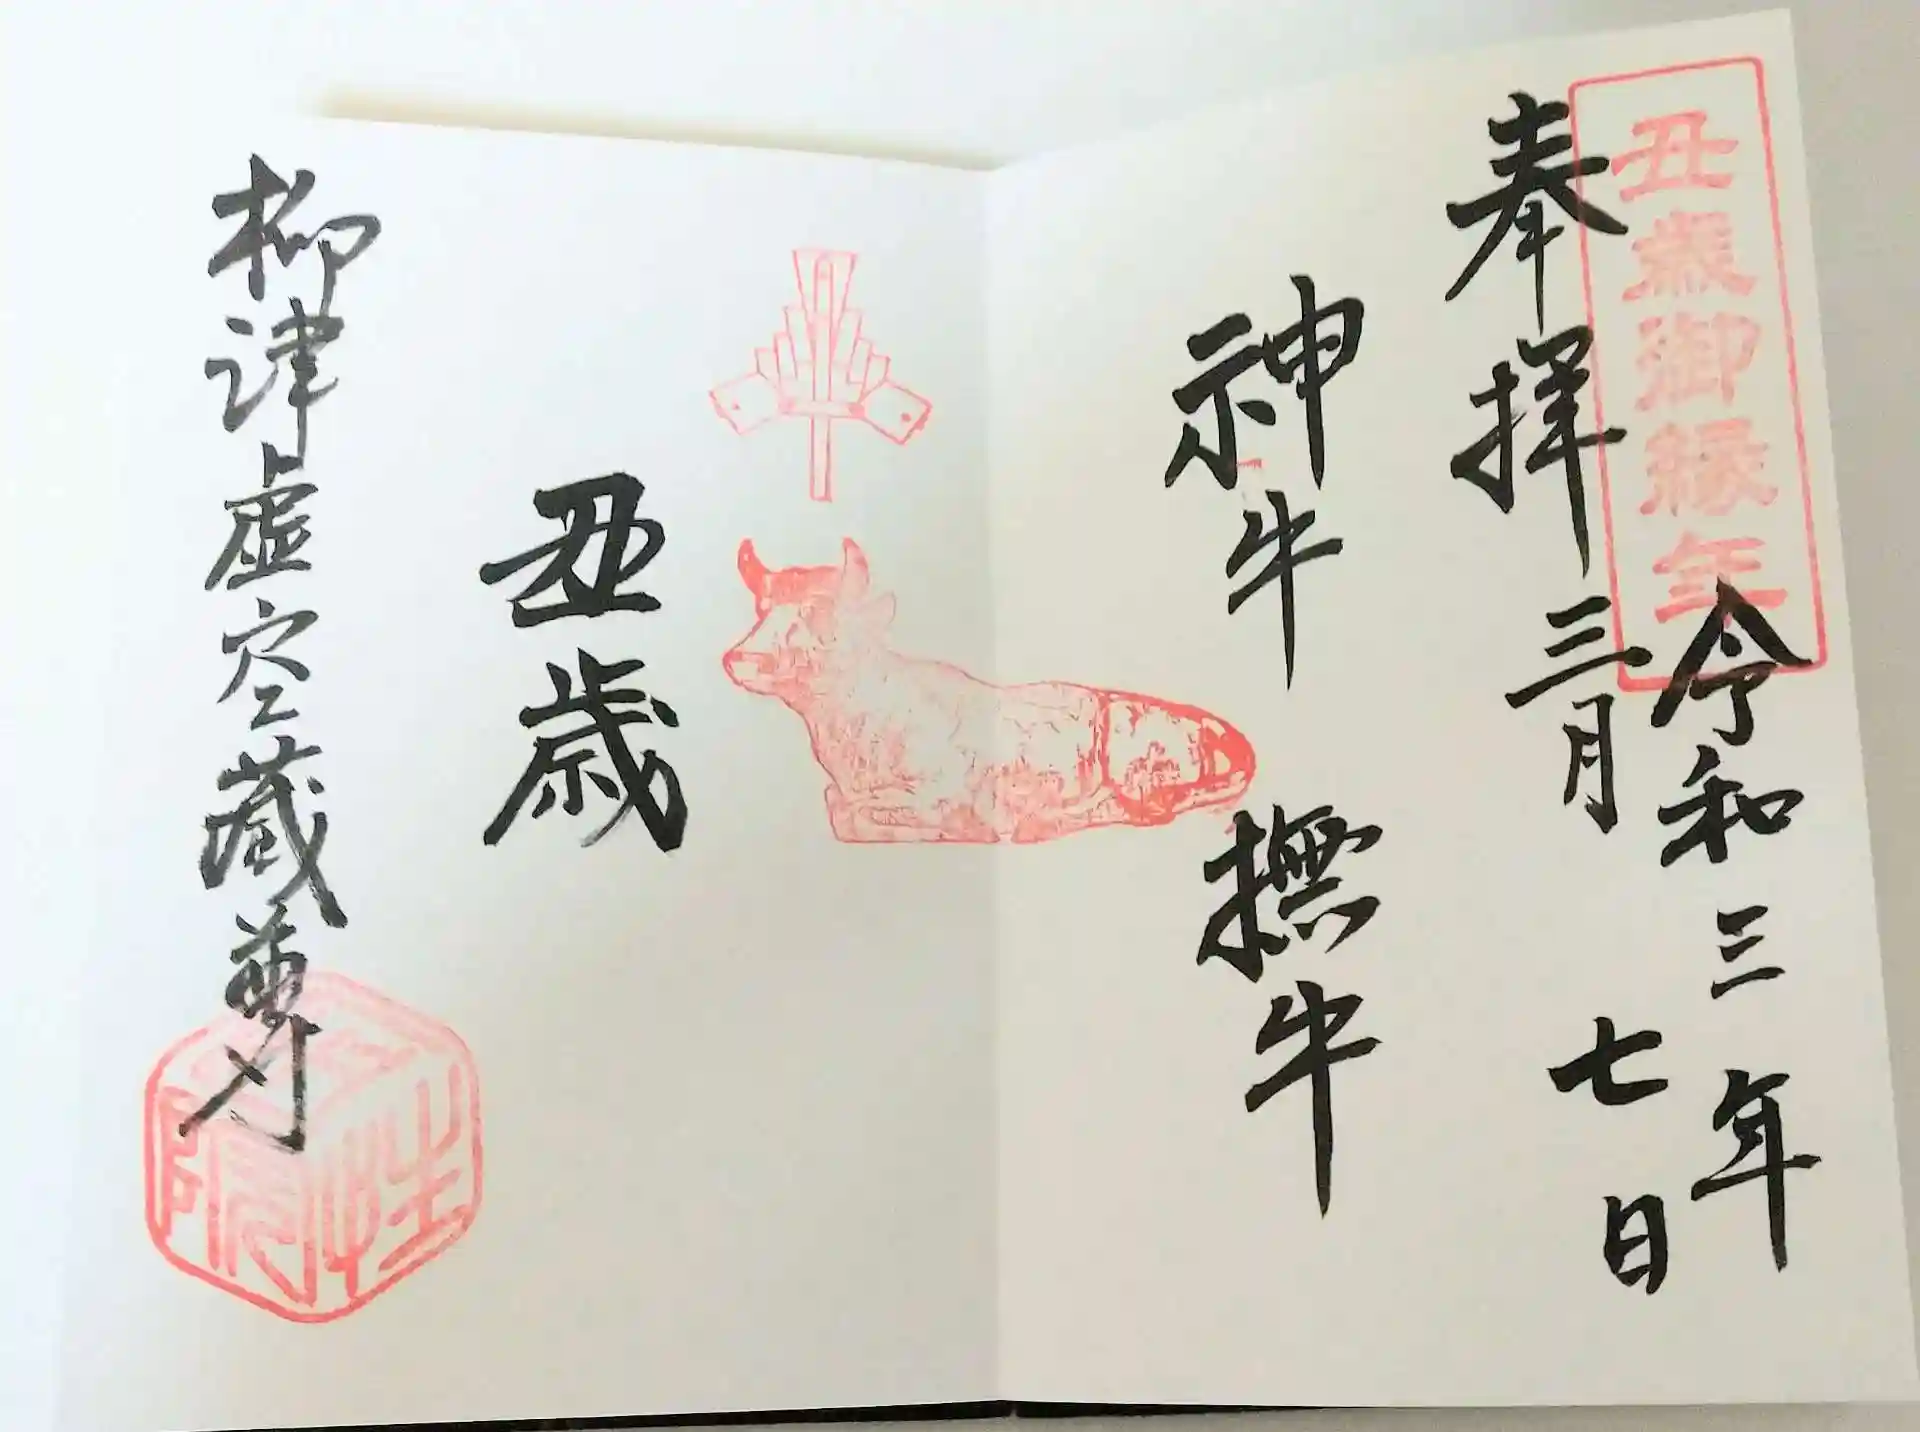 丑歳御縁年
令和三年
奉拝 三月 七日
神牛 撫牛
丑歳
柳津虚空蔵尊